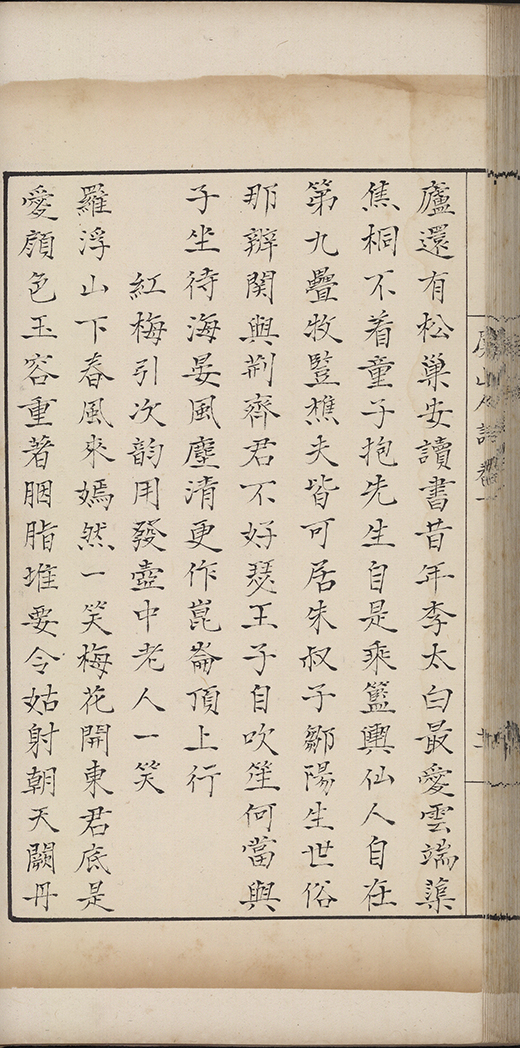 廬還有松巢安讀書昔年李太白最愛雲端葉
焦桐不着童子抱先生自是乘籃輿仙人自在
第九疊牧豎樵夫皆可居朱叔子鄒陽生世俗
那辨關與荆齊君不好瑟王子自吹笙何當與
子坐待海晏風塵清更作崑崙頂上行
紅梅引次韵用發壺中老人一笑
羅浮山下春風來嫣然一笑梅花開東君底是
愛顔色玉容重著胭脂堆要令姑射朝天闕丹